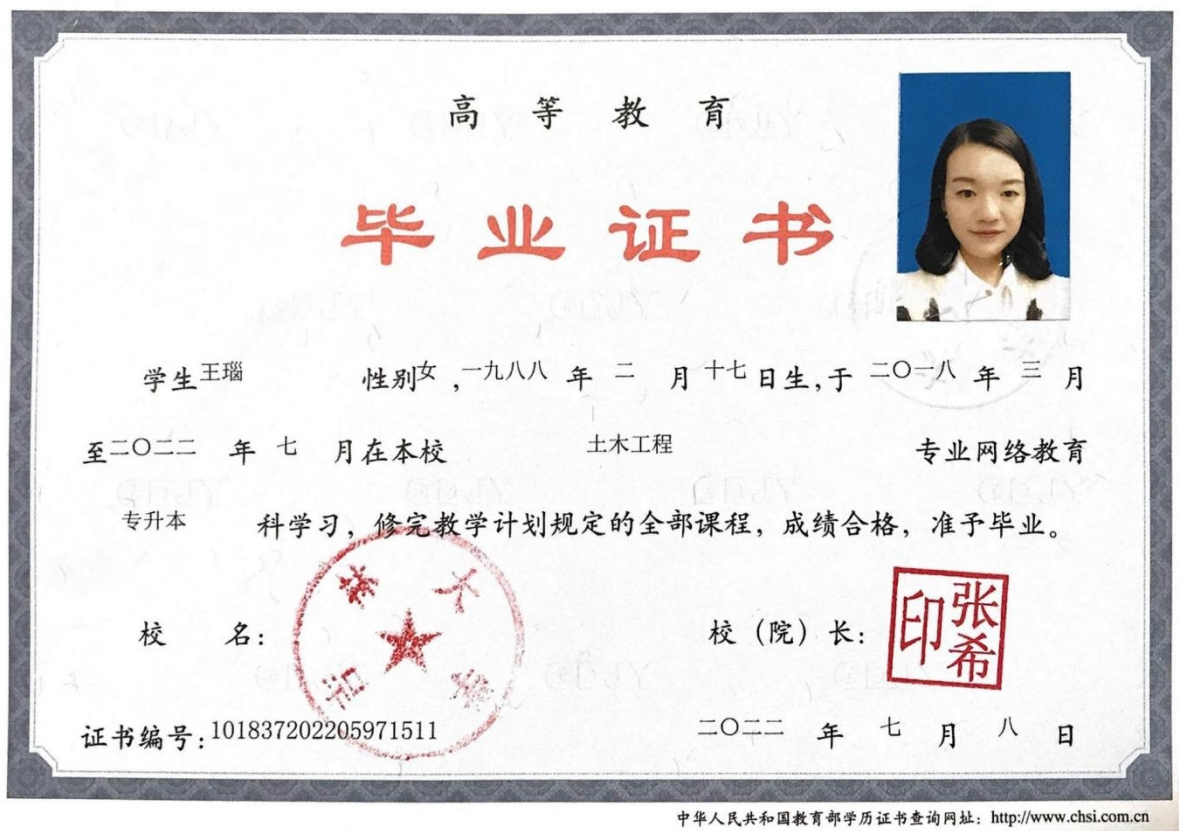 高等教育
毕业证书
学生王瑙 性别女,一九八八年二月十七日生,于二〇一八年三月
至二〇二二年七月在本校土木工程专业网络教育
专升本科学习，修完教学计划规定的全部课程，成绩合格，准予毕业。
校名：
吉林大学
校（院）长：
张希印
证书编号：101837202205971511
二〇二二年七月八日
中华人民共和国教育部学历证书查询网址：http://www.chsi.com.cn